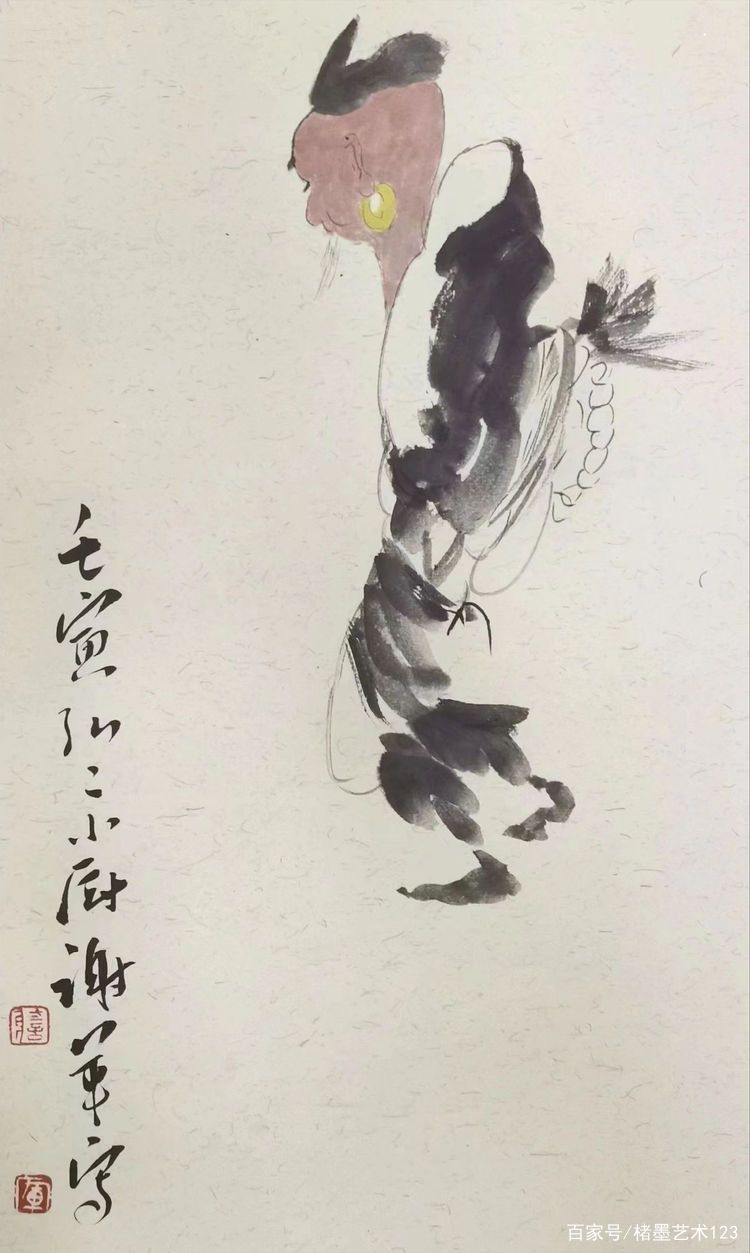 壬寅弘二小厨谢军写
军
百家号/楮墨艺术123